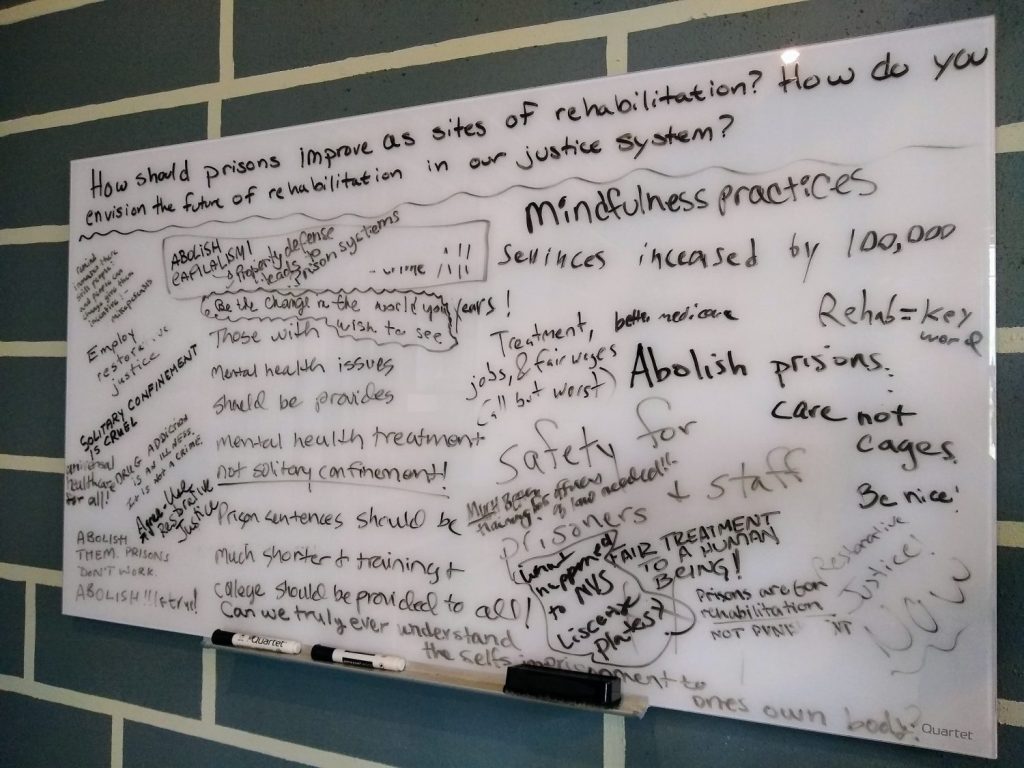 How should prisons improve as sites of rehabilitation? How do you
envision the future of rehabilitation in our justice system?
ABOLISH
CAPITALISM!
→ Property defense
leads to
prison systems
Be the change in the world you
wish to see
years!
Those with
mental health issues
should be provides
mental health treatment
not solitary confinement!
Prison sentences should be
much shorter & training &
college should be provided to all!
Can we truly ever understand
the selfs imprisonment to
ones own body?
Employ
justice
SOLITARY CONFINEMENT
IS CRUEL
healthcare
for all!
DRUG ADDICTION
IS AN ILLNESS.
It is NOT A CRIME.
Restorative
Justice
ABOLISH
THEM. PRISONS
DON'T WORK.
ABOLISH!!!
mindfulness practices
inceased by 100,000
Treatment, better medicare
jobs, & fair wages
(all but worst)
Rehab = key
word
Abolish prisons.
care not
cages.
Be nice!
Safety for
prisoners
& staff
training for officers
of law needed!!!
What
happened
to MVS
Liscense
plates?
FAIR TREATMENT
TO A HUMAN
BEING!
Prisons are for
rehabilitation
NOT
Restorative
Justice!
NOW
Quartet
Quartet